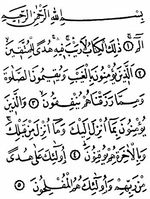 بِسْمِ اللهِ الرَّحْمٰنِ الرَّحِيْمِ
الٓمّٓ ۝١ ذٰلِكَ الْكِتَابُ لَا رَيْبَ فِيْهِ هُدًى لِّلْمُتَّقِيْنَ
۝٢ الَّذِيْنَ يُؤْمِنُوْنَ بِالْغَيْبِ وَيُقِيْمُوْنَ الصَّلٰوةَ
وَمِمَّا رَزَقْنَاهُمْ يُنْفِقُوْنَ ۝٣ وَالَّذِيْنَ
يُؤْمِنُوْنَ بِمَا أُنْزِلَ إِلَيْكَ وَمَا أُنْزِلَ مِنْ قَبْلِكَ
وَبِالْآخِرَةِ هُمْ يُوْقِنُوْنَ ۝٤ أُولٰئِكَ عَلٰى هُدًى
مِنْ رَبِّهِمْ وَأُولٰئِكَ هُمُ الْمُفْلِحُوْنَ ۝٥